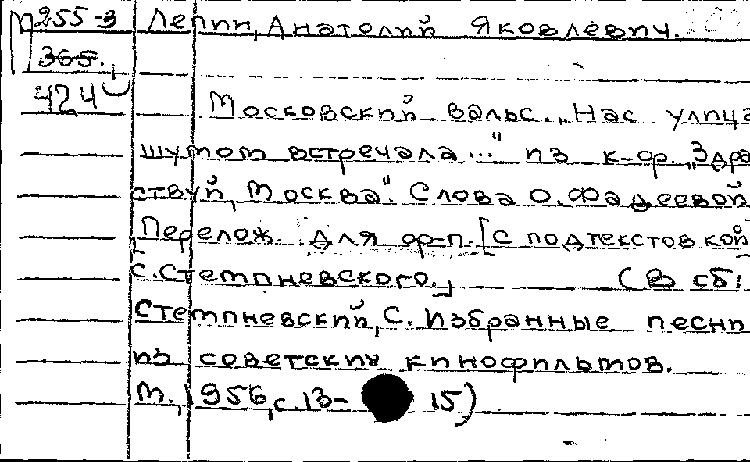 М 255-3 Лепин, Анатолий Яковлевич.
365.
424
Московский вальс. „Нас улица
шумом встречала..." из к-ф „Здра
ствуй, Москва". Слова О. Фадеевой
Перелож. для ф-п. [с подтекстовкой
С. Стемпневского.] (В сб:
Стемпневский, С. Избранные песни
из советских кинофильмов.
М., 1956, с. 13- 15)